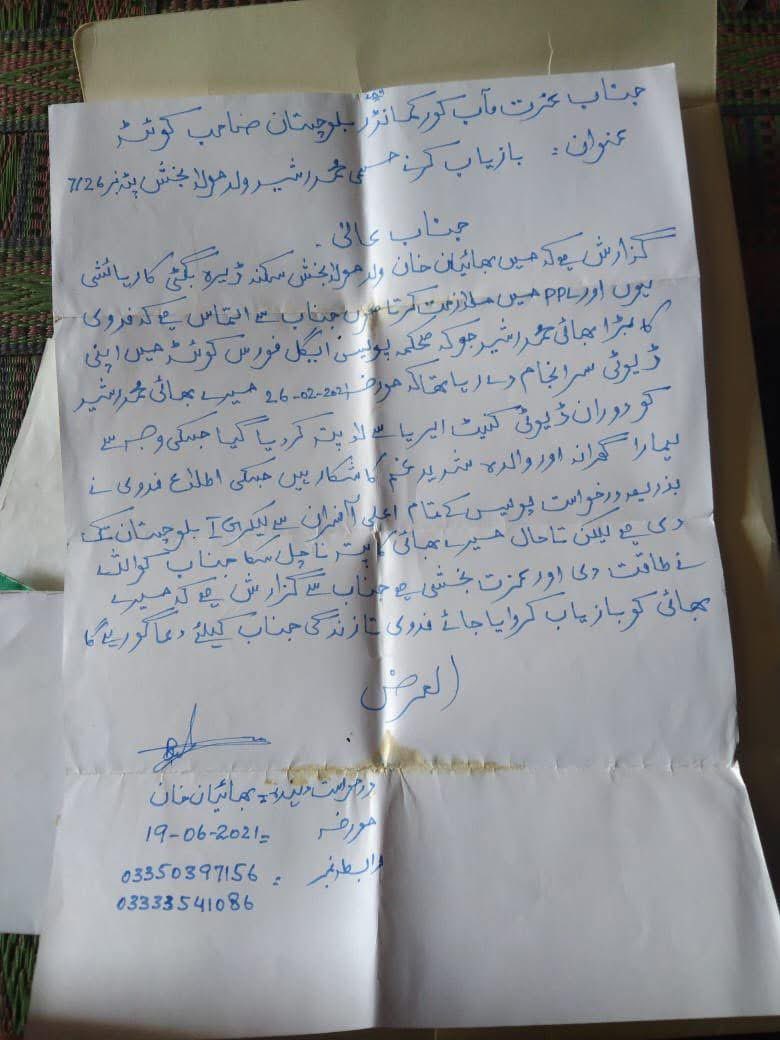 جناب عزت مآب کور کمانڈر بلوچستان صاحب کوئٹہ
عنوان: بازیاب کرنے مسمی محمد رشید ولد مولا بخش پٹہ نمبر 7126
جناب عالی۔
گزارش ہے کہ میں بھائیان خان ولد مولا بخش سکنہ ڈیرہ بگٹی کا رہائشی
ہوں اور PPL میں ملازمت کرتا ہوں جناب سے التماس ہے کہ فدوی
کا بڑا بھائی محمد رشید جو کہ محکمہ پولیس ایگل فورس کوئٹہ میں اپنی
ڈیوٹی سر انجام دے رہا تھا کہ مورخہ 26-02-2021 میرے بھائی محمد رشید
کو دوران ڈیوٹی کینٹ ایریا سے لاپتہ کر دیا گیا جسکی وجہ سے
ہمارا گھرانہ اور والدہ شدید غم کا شکار ہیں جسکی اطلاع فدوی نے
بذریعہ درخواست پولیس کے تمام اعلی آفسران سے لیکر بلوچستان تک
دی ہے لیکن تاحال میرے بھائی کا پتہ نا چل سکا جناب کو اللہ
نے طاقت دی اور عزت بخشی ہے جناب سے گزارش ہے کہ میرے
بھائی کو بازیاب کروایا جائے فدوی تا زندگی جناب کیلئے دعا گو رہے گا
العرض
درخواست دہندہ = بھائیان خان
مورخہ = 19-06-2021
رابطہ نمبر : 03350397156
03333541086